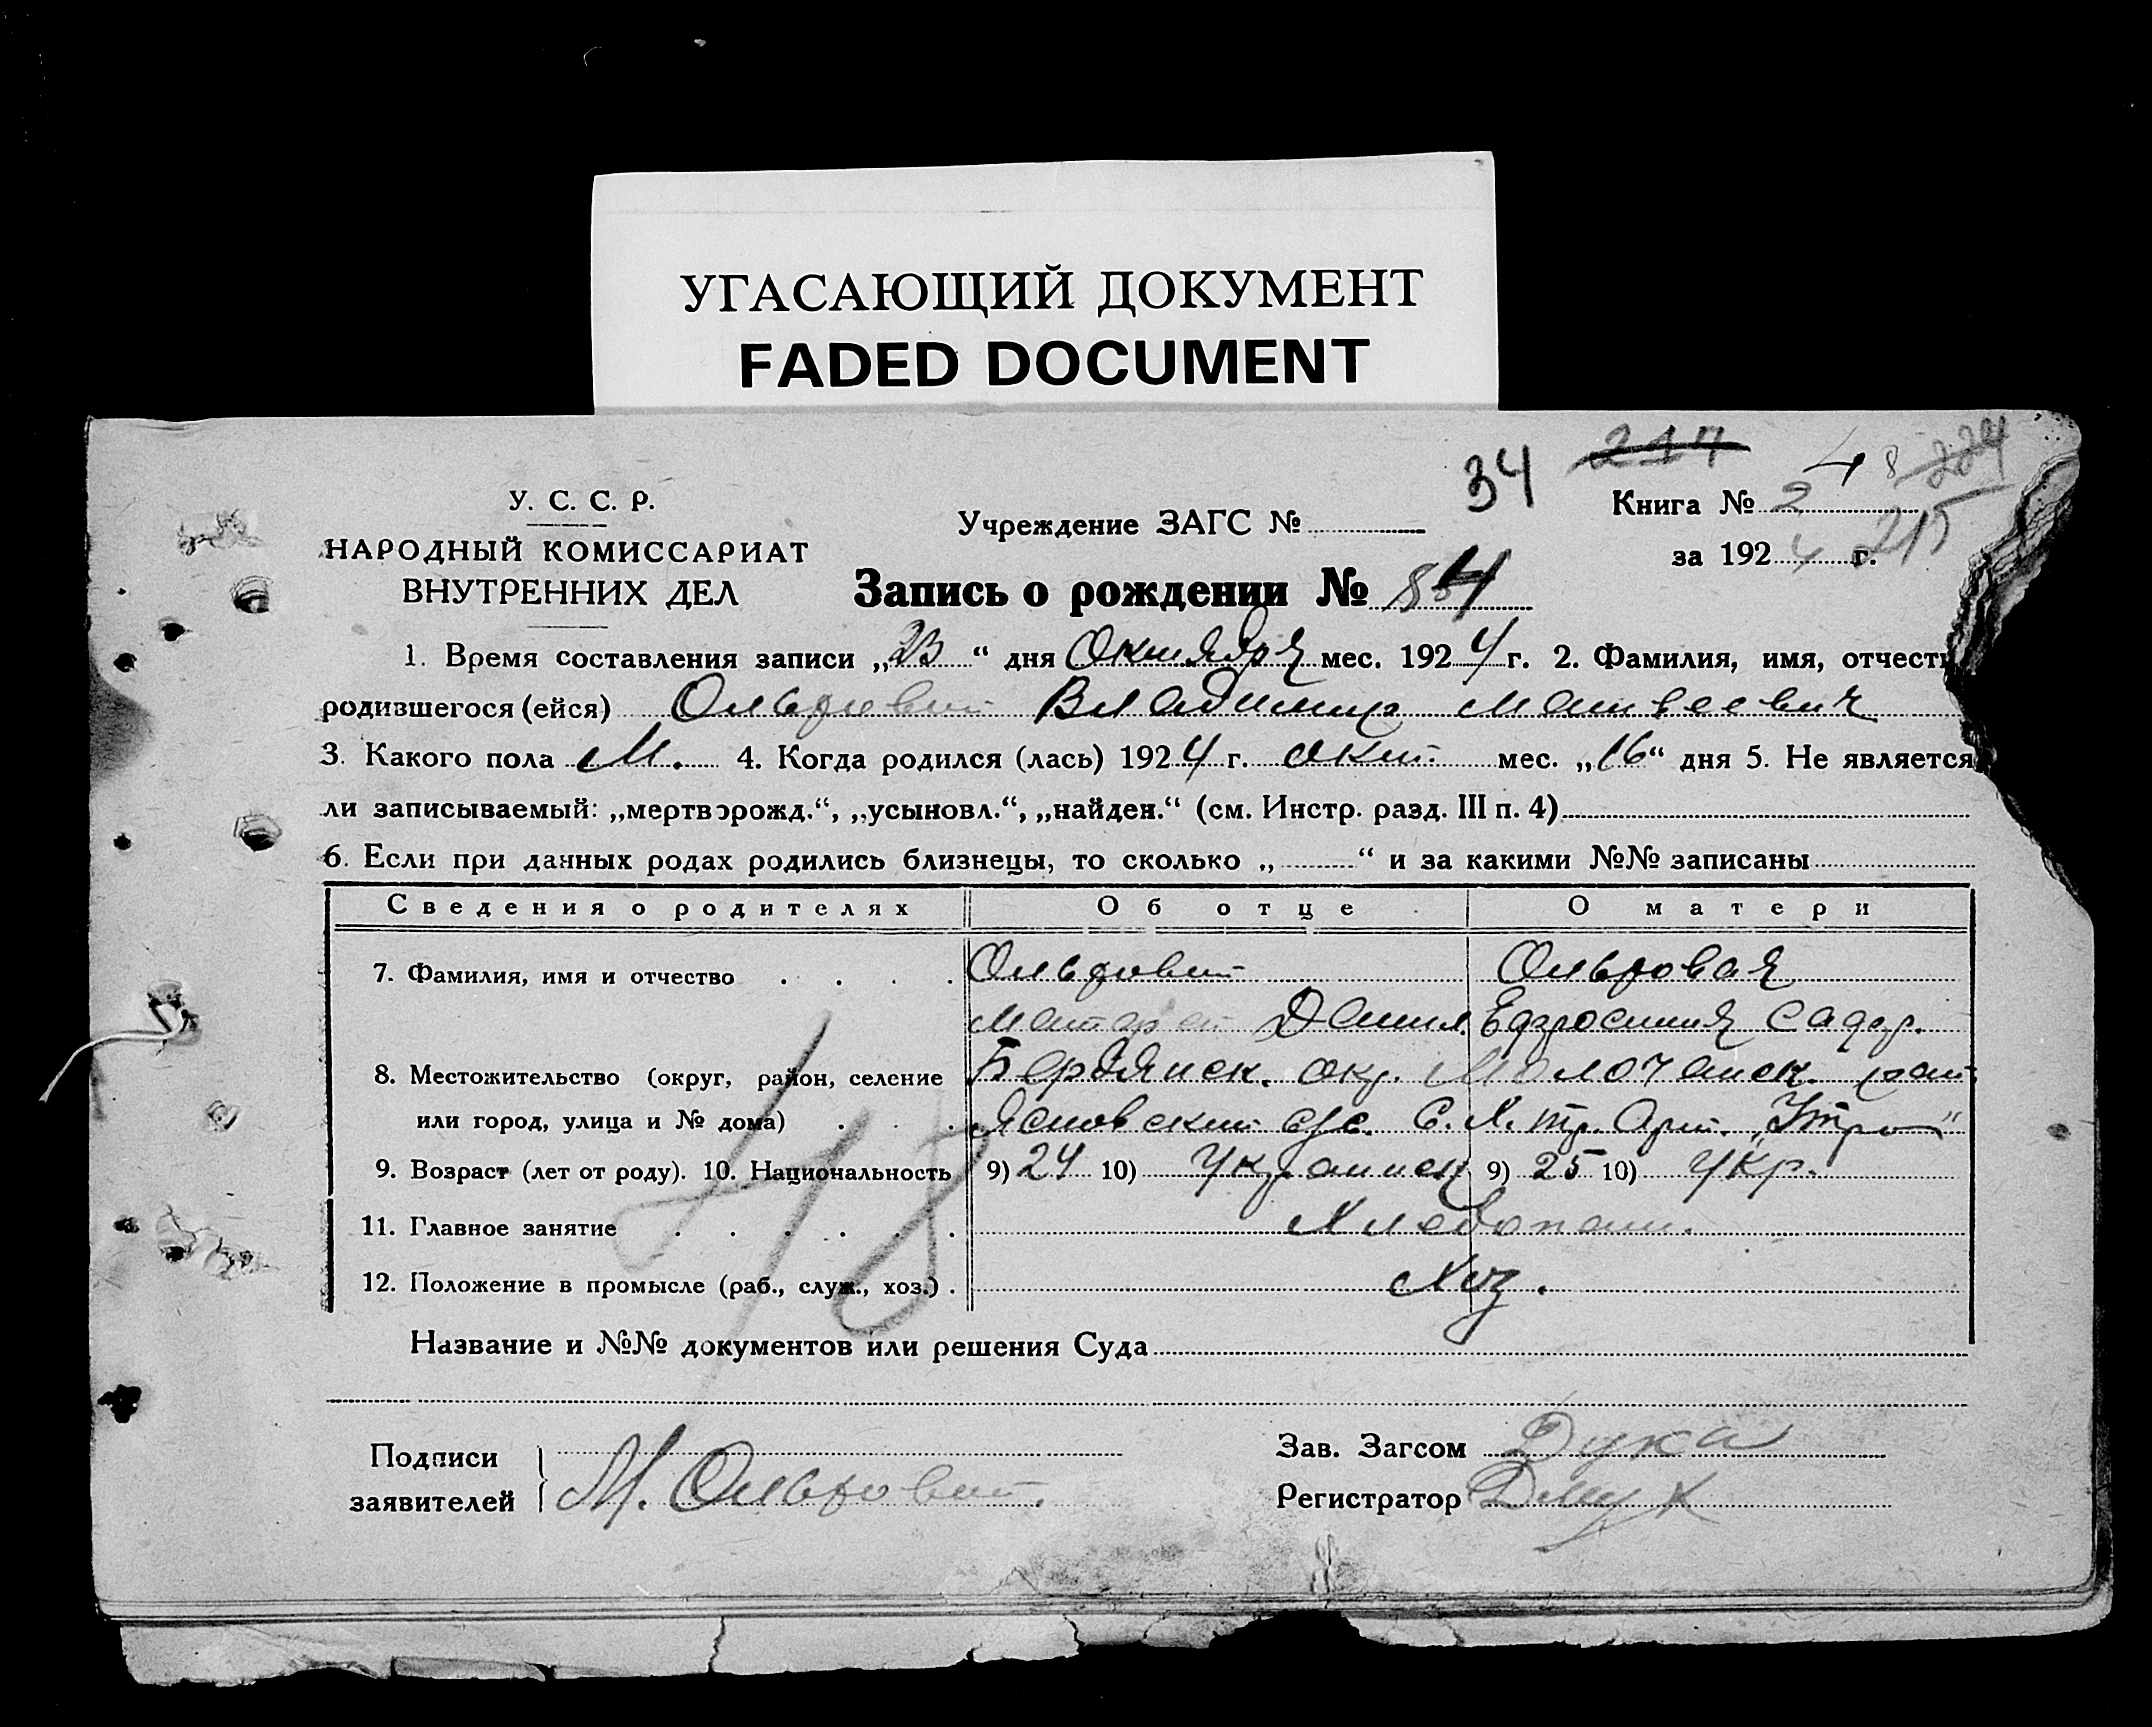 УГАСАЮЩИЙ ДОКУМЕНТ
FADED DOCUMENT
34 214 4 8 224
У. С. С. Р.
НАРОДНЫЙ КОМИССАРИАТ
ВНУТРЕННИХ ДЕЛ
Учреждение ЗАГС №
Книга № 2
215
за 1924 г.
Запись о рождении №
1. Время составления записи „23“ дня Октября мес. 1924 г. 2. Фамилия, имя, отчеств
родившегося (ейся) Владимир Матвеевич
3. Какого пола М. 4. Когда родился (лась) 1924 г. окт. мес. „16“ дня 5. Не является
ли записываемый: „мертворожд.“, „усыновл.“, „найден.“ (см. Инстр. разд. III п. 4)
6. Если при данных родах родились близнецы, то сколько „ “ и за какими №№ записаны
Сведения о родителях Об отце О матери
7. Фамилия, имя и отчество
Данил. Ефросиния
8. Местожительство (округ, район, селение Бердянск. окр. Молочанск. рай
или город, улица и № дома) С. Х. тр. Арт. „Утро“
9. Возраст (лет от роду). 10. Национальность 9) 24 10) Украинск 9) 25 10) Укр.
11. Главное занятие Хлебопаш.
12. Положение в промысле (раб., служ., хоз.) Хоз.
48
Название и №№ документов или решения Суда
Подписи
заявителей М.
Зав. Загсом Дука
Регистратор